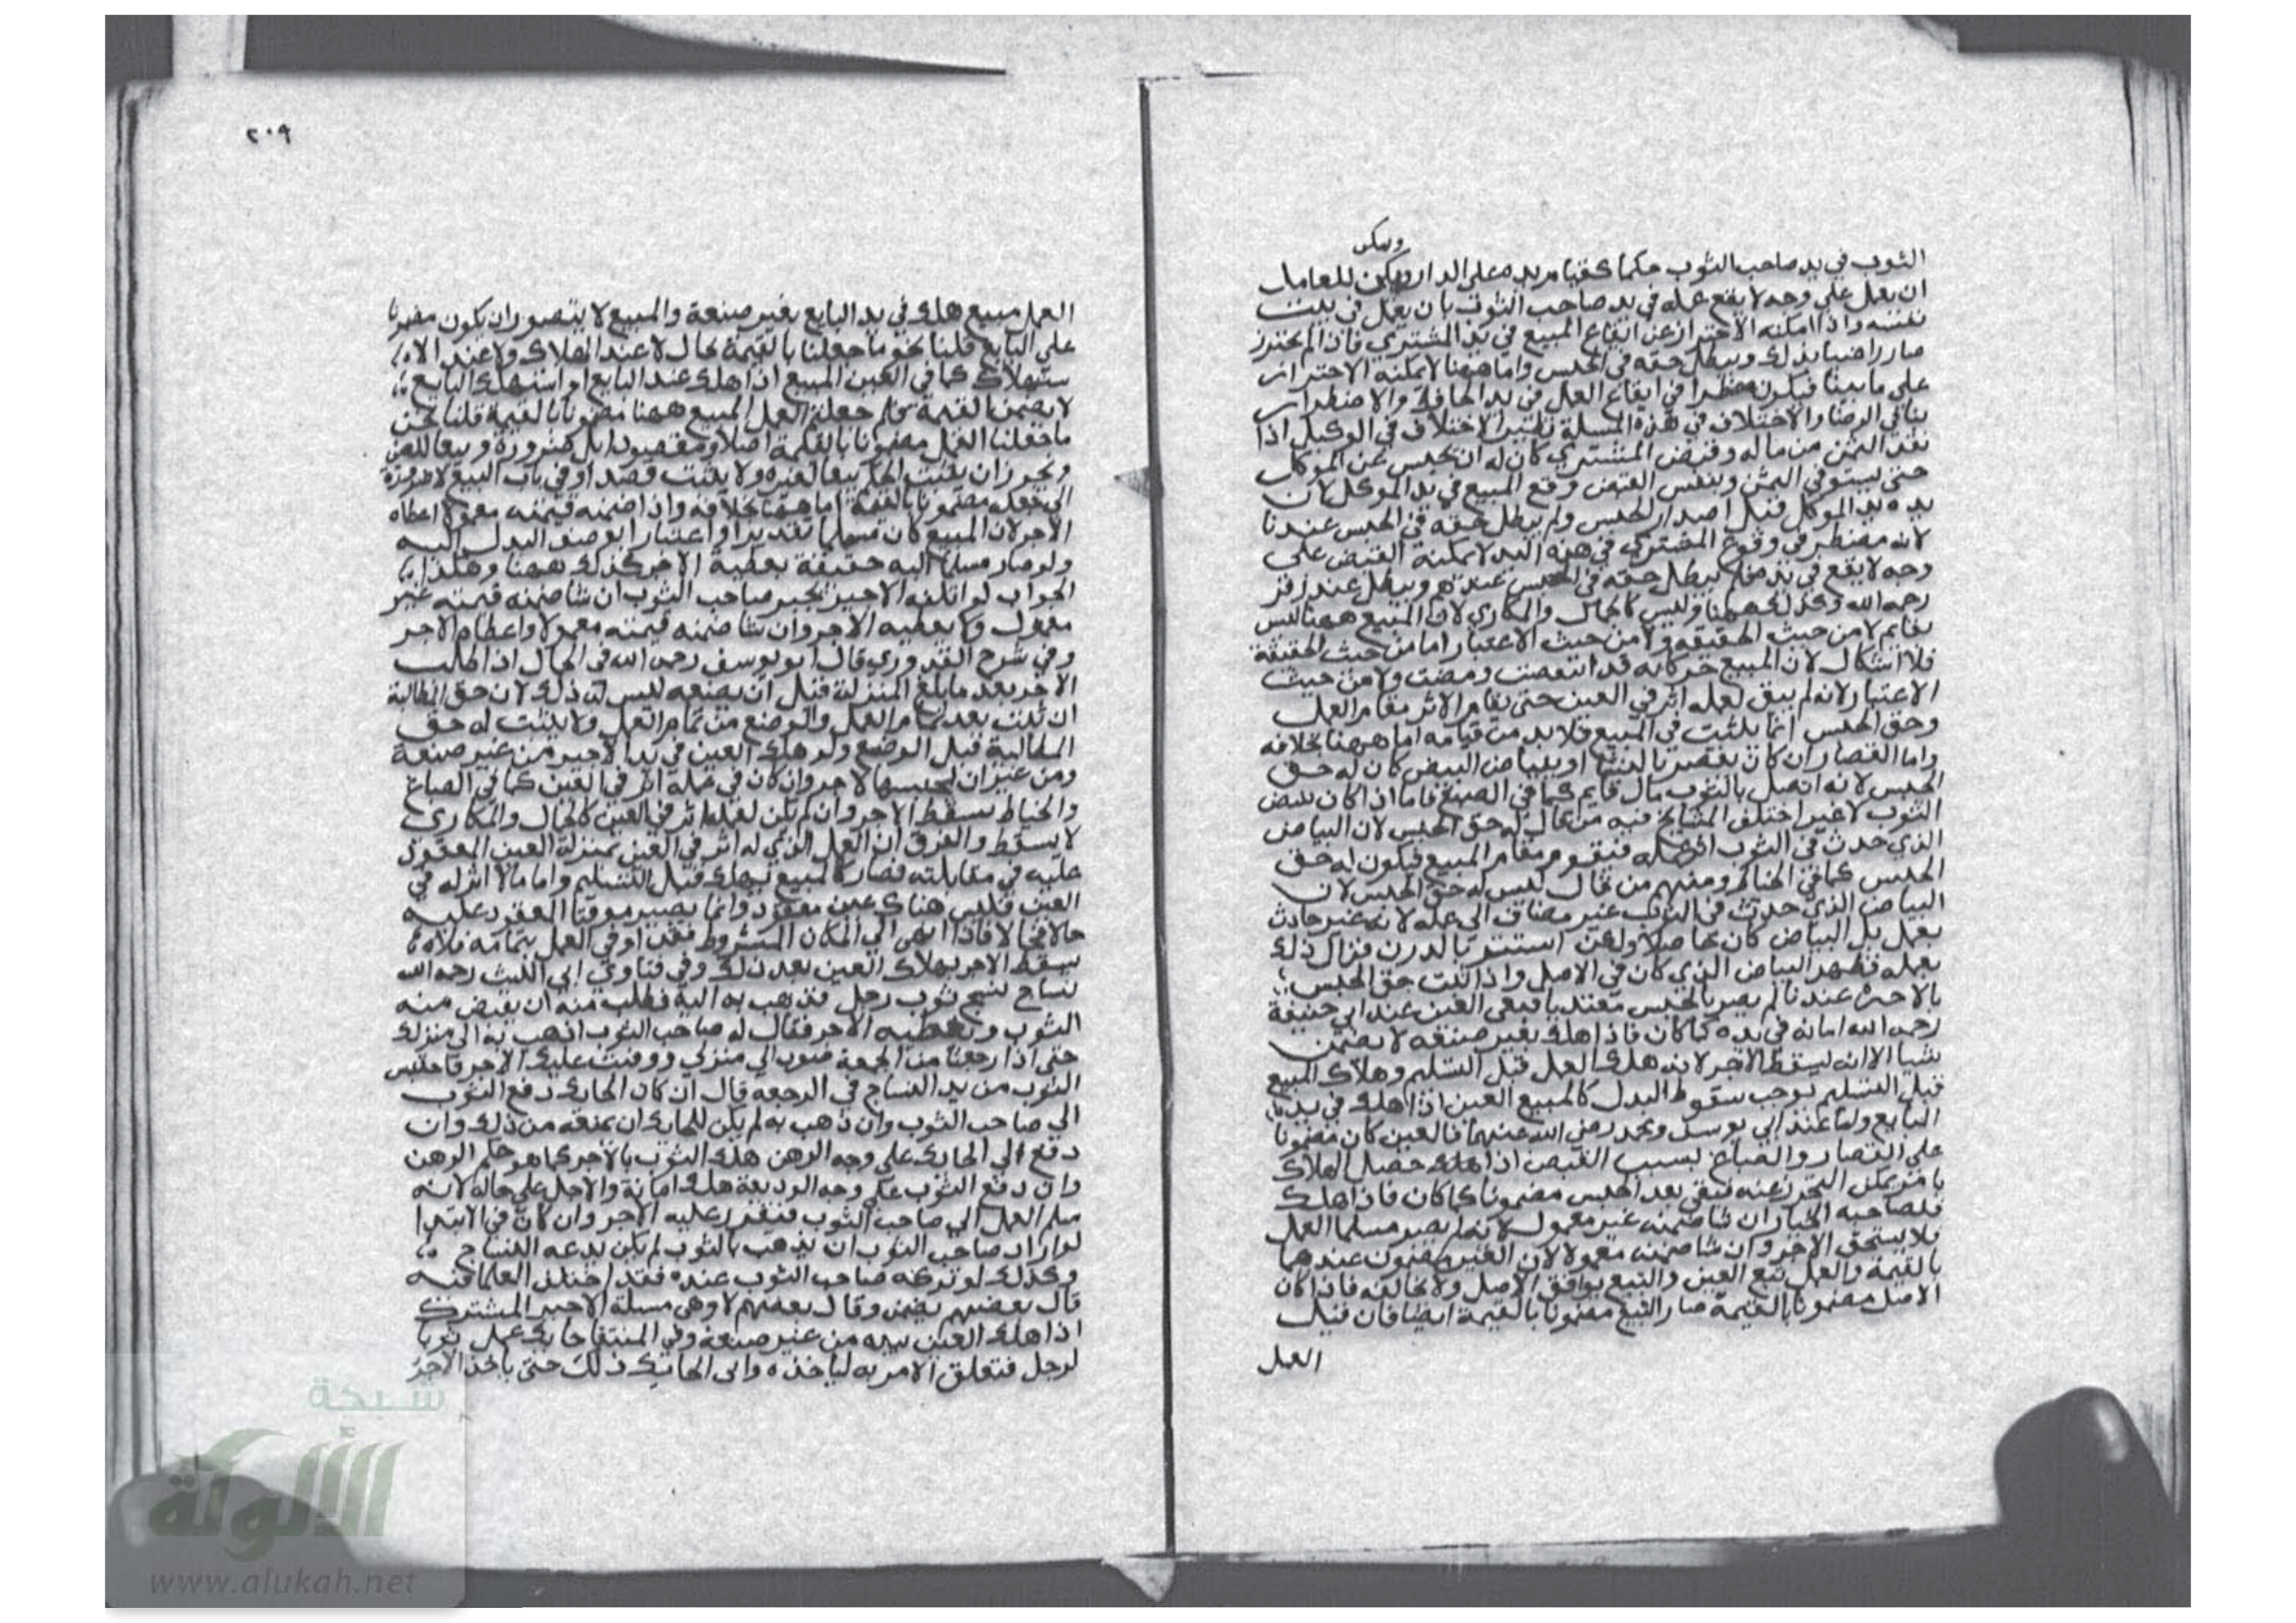 ويمكن
الثوب في يد صاحب الثوب حكما لقيام يده على الدار ويمكن للعامل
ان يعمل على وجه لا يقع عمله في يد صاحب الثوب بان يعمل في بيت
نفسه واذا امكنه الاحتراز عن ايقاع المبيع في يد المشتري فاذا لم يحترز
صار راضيا بذلك ويبطل حقه في الحبس واما ههنا لا يمكنه الاحتراز
على ما بينا فيكون مضطرا في ايقاع العمل في يد الحافة والاضطرار
ينافي الرضا والاختلاف في هذه المسلة نظير الاختلاف في الوكيل اذا
نقد الثمن من ماله وقبض المشتري كان له ان يحبس عن الموكل
حتى يستوفي الثمن وبنفس القبض وقع المبيع في يد الموكل لان
يده يد الموكل قبل احداث الحبس ولم يبطل حقه في الحبس عندنا
لانه مضطر في وقوع المشتري في هذه اليد لا يمكنه القبض على
وجه لا يقع في يد فلم يبطل حقه في الحبس عندهم ويبطل عند زفر
رحمه الله وكذلك ههنا وليس كالحمال والمكاري لان المبيع ههنا ليس
بقايم لا من حيث الحقيقة ولا من حيث الاعتبار اما من حيث الحقيقة
فلا اشكال لان المبيع حركاته قد انقضت ومضت ولا من حيث
الاعتبار لانه لم يبق لعمله اثر في العين حتى يقام الاثر مقام العمل
وحق الحبس انما يثبت في المبيع فلا بد من قيامه اما ههنا بخلافه
واما القصار ان كان يقصر بالنشا او بيياض البيض كان له حق
الحبس لانه اتصل بالثوب مال قايم كما في الصبغ فاما اذا كان يبيض
الثوب لا غير اختلف المشايخ فيه من قال له حق الحبس لان البياض
الذي حدث في الثوب اثر عمله فيقوم مقام المبيع فيكون له حق
الحبس كما في الخياط ومنهم من قال ليس له حق الحبس لان
البياض الذي حدث في الثوب غير مضاف الى عمله لانه غير حادث
بعمل بل البياض كان حاصلا ولكن استتر بالدرن فزال ذلك
بعمله فظهر البياض الذي كان في الاصل واذا ثبت حق الحبس
بالاجرة عندنا لم يصر بالحبس متعديا فبقى العين عند ابي حنيفة
رحمه الله امانة في يده كما كان فاذا هلك بغير صنعه لا يضمن
شيا الا انه يسقط الاجر لانه هلك العمل قبل التسليم وهلاك المبيع
قبل التسليم يوجب سقوط البدل كالمبيع العين اذا هلك في يد
البايع ولما عند ابي يوسف ومحمد رضي الله عنهما فالعين كان مضمونا
على القصار والصباغ بسبب القبض اذا هلك حصل الهلاك
بامر يمكن التحرز عنه فبقي بعد الحبس مضمونا كما كان فاذا هلك
فلصاحبه الخيار ان شا ضمنه غير معمول لانه لم يصر مسلما العمل
فلا يستحق الاجر وان شا ضمنه معمولا لان العين مضمون عندهما
بالقيمة والعمل تبع العين والتبع يوافق الاصل ولا يخالفه فاذا كان
الاصل مضمونا بالقيمة صار التبع مضمونا بالقيمة ايضا فان قيل
العمل
٢٠٩
العمل مبيع هلك في يد البايع بغير صنعة والمبيع لا يتصور ان يكون مضمونا
على البايع قلنا نحو ما جعلنا بالقيمة بحال لا عند الهلاك ولا عند الا
ستهلاك كما في العين المبيع اذا هلك عند البايع او استهلك البايع
لا يضمن القيمة فلم جعلتم العمل المبيع ههنا مضمونا بالقيمة قلنا نحن
ما جعلنا العمل مضمونا بالقيمة اصلا ومقصودا بل ضرورة وتبعا للعين
ويجوز ان يثبت الحكم تبعا لغيره ولا يثبت قصدا وفي باب البيع لا ضرورة
الى جعله مضمونا بالقيمة اما ههنا بخلافه واذا ضمنه قيمته معمولا اعطاه
الاجر لان المبيع كان مسلما تقديرا واعتبارا بوصف البدل اليه
ولو صار مسلما اليه حقيقة يعطيه الاجر كذلك ههنا وهكذا
الجواب لو اتلفه الاجير يخير صاحب الثوب ان شا ضمنه قيمته غير
معمول ولا يعطيه الاجر وان شا ضمنه قيمته معمولا واعطاه الاجر
وفي شرح القدوري قال ابو يوسف رحمه الله في الحمال اذا طلب
الاجر بعد ما بلغ المنزل قبل ان يضعه ليس له ذلك لان حق المطالبة
ان ثبت بعد تمام العمل والوضع من تمام العمل ولا يثبت له حق
المطالبة قبل الوضع ولو هلك العين في يد الاجير من غير صنعة
ومن غير ان يحبسها لاجر وان كان في عمله اثر في العين كما في الصباغ
والخياط يسقط الاجر وان لم يكن لعمله اثر في العين كالحمال والمكاري
لا يسقط والفرق ان العمل الذي له اثر في العين بمنزلة العين المعقود
عليه في مقابلته فصار كالمبيع يهلك قبل التسليم واما ما لا اثر له في
العين فليس هناك عين معقود وانما يصير موفيا المعقود عليه
حالا فحالا فاذا انتهى الى المكان المشروط فقد اوفى العمل بتمامه فلا
يسقط الاجر بهلاك العين بعد ذلك وفي فتاوى ابي الليث رحمه الله
نساج نسج ثوب رجل فذهب به اليه فطلب منه ان يقبض منه
الثوب ويعطيه الاجر فقال له صاحب الثوب اذهب به الى منزلك
حتى اذا رجعنا من الجمعة فتوب الى منزلي ووفيت عليك الاجر فاختلس
الثوب من يد النساج في الرجعة قال ان كان الحايك دفع الثوب
الى صاحب الثوب وان ذهب به لم يكن للحايك ان يمنعه من ذلك وان
دفع الى الحايك على وجه الرهن هلك الثوب بالاجر كما هو حكم الرهن
وان دفع الثوب على وجه الوديعة هلك امانة والاجل على حاله لانه
سلم العمل الى صاحب الثوب فتقرر عليه الاجر وان كان في الابتدا
لو اراد صاحب الثوب ان يذهب بالثوب لم يكن يدعه النساج
وكذلك لو تركه صاحب الثوب عنده فقد اختلف العلما فيه
قال بعضهم يضمن وقال بعضهم لا وهي مسلة الاجير المشترك
اذا هلك العين بيده من غير صنعة وفي المنتقى حايك عمل ثوبا
لرجل فتعلق الامر به لياخذه وابى الحايك ذلك حتى ياخذ الاجر
شبكة
الألوكة
www.alukah.net